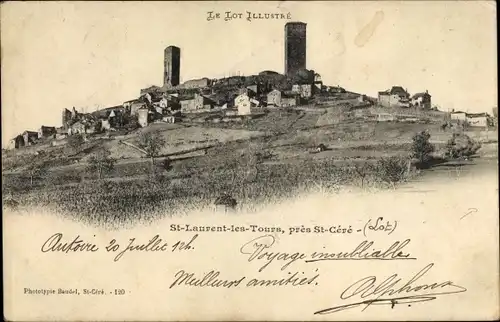 LE LOT ILLUSTRÉ
St-LAURENT-LES-TOURS, PRÈS St-CÉRÉ - (Lot)
Autoire 20 Juillet
Voyage inoubliable
Meilleurs amitiés.
Alphons
Phototypie Baudel, St-Céré. - 120